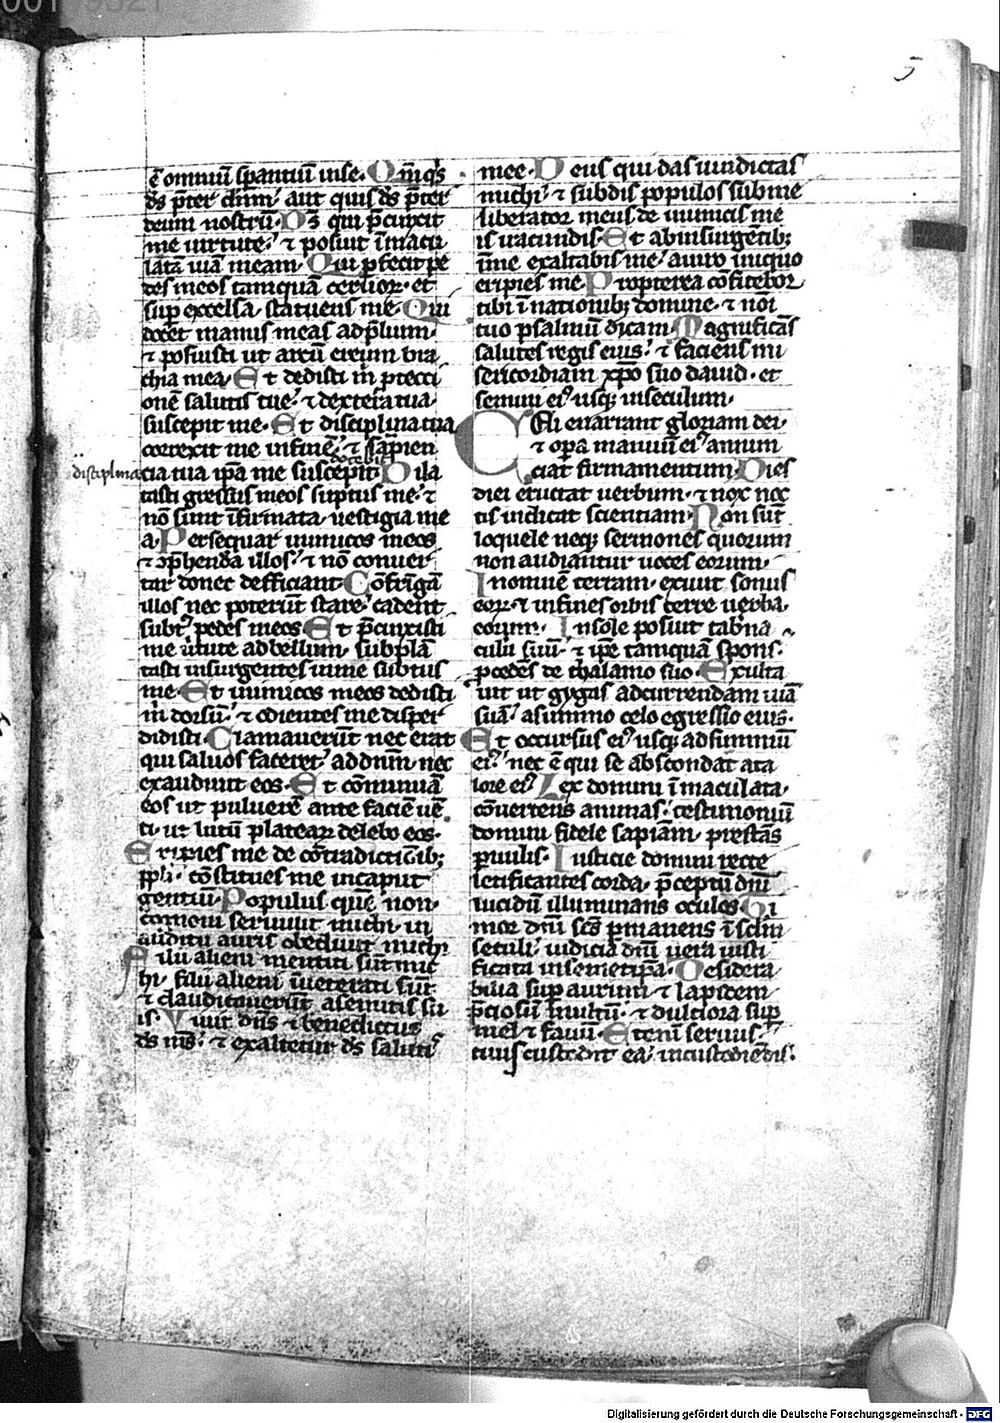 5
ē omniū sꝑantiū inse. Qm̄ q̇s
d̄s p̄ter dnm̄. aut quis d̄s p̄ter
deum nostrū. D̄s qui p̄cinxit
me uirtute. ⁊ posuit īmacu
latā uiā meam. Qui ꝑfecit pe
des meos tamquā ceruor. et
suꝑ excelsa. statuens me. Qui
docet manus meas adp̄lium.
⁊ posuisti ut arcū ereum bra
chia mea. Et dedisti m̄ ꝓtecci
onē salutis tue. ⁊ dextera tua
suscepit me. Et disciplina tua
correxit me infinē. ⁊
disciplina
tua ip̄a me Dila
tasti gressus meos suptus me. ⁊
nō sunt īfirmata uestigia me
a. Persequar inimicos meos
⁊ ꝯp̄hendā illos. ⁊ nō conuer
tar donec defficiant. Cōfrīgā
illos nec poterūt stare. cadent
subt᷒ pedes meos. Et p̄cinxisti
me uirtute adbellum. subplā
tasti insurgentes inme subtus
me. Et inimicos meos dedisti
m̄ dorsū. ⁊ odientes me disper
didisti. Clamauerūt nec erat
qui saluos faceret. ad dnm̄. nec
exaudiuit eos. Et cōminuā
eos ut puluerē ante faciē uē
ti. ut lutū plateaꝝ delebo eos.
Eripies me de cōtradictiōib;
ppl̄i. cōstitues me incaput
gentiū. Populus quē non
cognoui seruiuit michi. in
auditu auris obediuit michi
Filii alieni mentiti sūt mic
hi. filii alieni īueterati sūt
⁊ claudicauerūt a semitis su
is. Viuit dn̄s ⁊ benedictus
d̄s m̄s. ⁊ exaltetur d̄s saluti᷒
mee. Deus qui das uindictas
michi. ⁊ subdis populos sub me
liberator meus de inimicis me
is iracundis. Et ab insurgētib;
īme exaltabis me. a uiro iniquo
eripies me. Propterea cōfitebor
tibi ī nationib; domine. ⁊ noī
tuo psalmū dicam. Magnificās
salutes regis eius. ⁊ faciens mi
sericordiam xp̄o suo dauid. et
semini ei᷒ usq; inseculum.
Celi enarrant gloriam dei.
⁊ oꝑa manuū ei᷒ annun
ciat firmamentum. Dies
diei eructat uerbum. ⁊ nox noc
tis indicat scientiam. Non sūt
loquele neq; sermones quorum
non audiantur uoces eorum.
Inomnē terram. exiuit sonus
eoꝝ. ⁊ infines orbis terre uerba.
eorum. Insole posuit tabna
culū suū. ⁊ ip̄e tamquā spons᷒
ꝓcedēs de thalamo suo. Exulta
uit ut gygas adcurrendam uiā
suā. asummo celo egressio eius.
Et occursus ei᷒ usq; adsummū
ei᷒. nec ē qui se abscondat a ca
lore ei᷒. Lex domini īmaculata.
cōuertens animas. testimoniū
domini fidele sapiām. prestās
ꝑuulis. Iusticie domini recte
letificantes corda. p̄ceptū dn̄i
lucidū illuminans oculos. Ti
mor dn̄i scs̄ ꝑmanens ī sclm̄
seculi. iudicia dn̄i uera iusti
ficata insemetipā. Desidera
bilia suꝑ aurum. ⁊ lapidem
p̄ciosū multū. ⁊ dulciora suꝑ
mel ⁊ fauū. Etenī seruus.
tuus custodit ea. incustodiēdis.
Digitalisierung gefördert durch die Deutsche Forschungsgemeinschaft - DFG